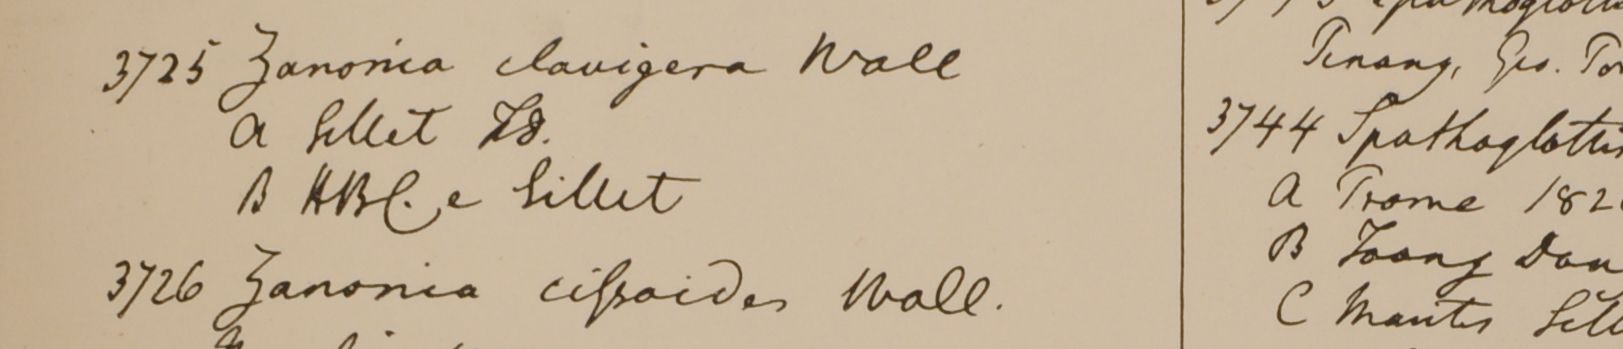 3725 Zanonia clavigera Wall
A Sillet FD.
B HBC. e Sillet
3726 Zanonia cissoides Wall.
Pinang, Geo.
3744 Spathoglottis
A Prome 182
B Toong Don
C Montes Sill